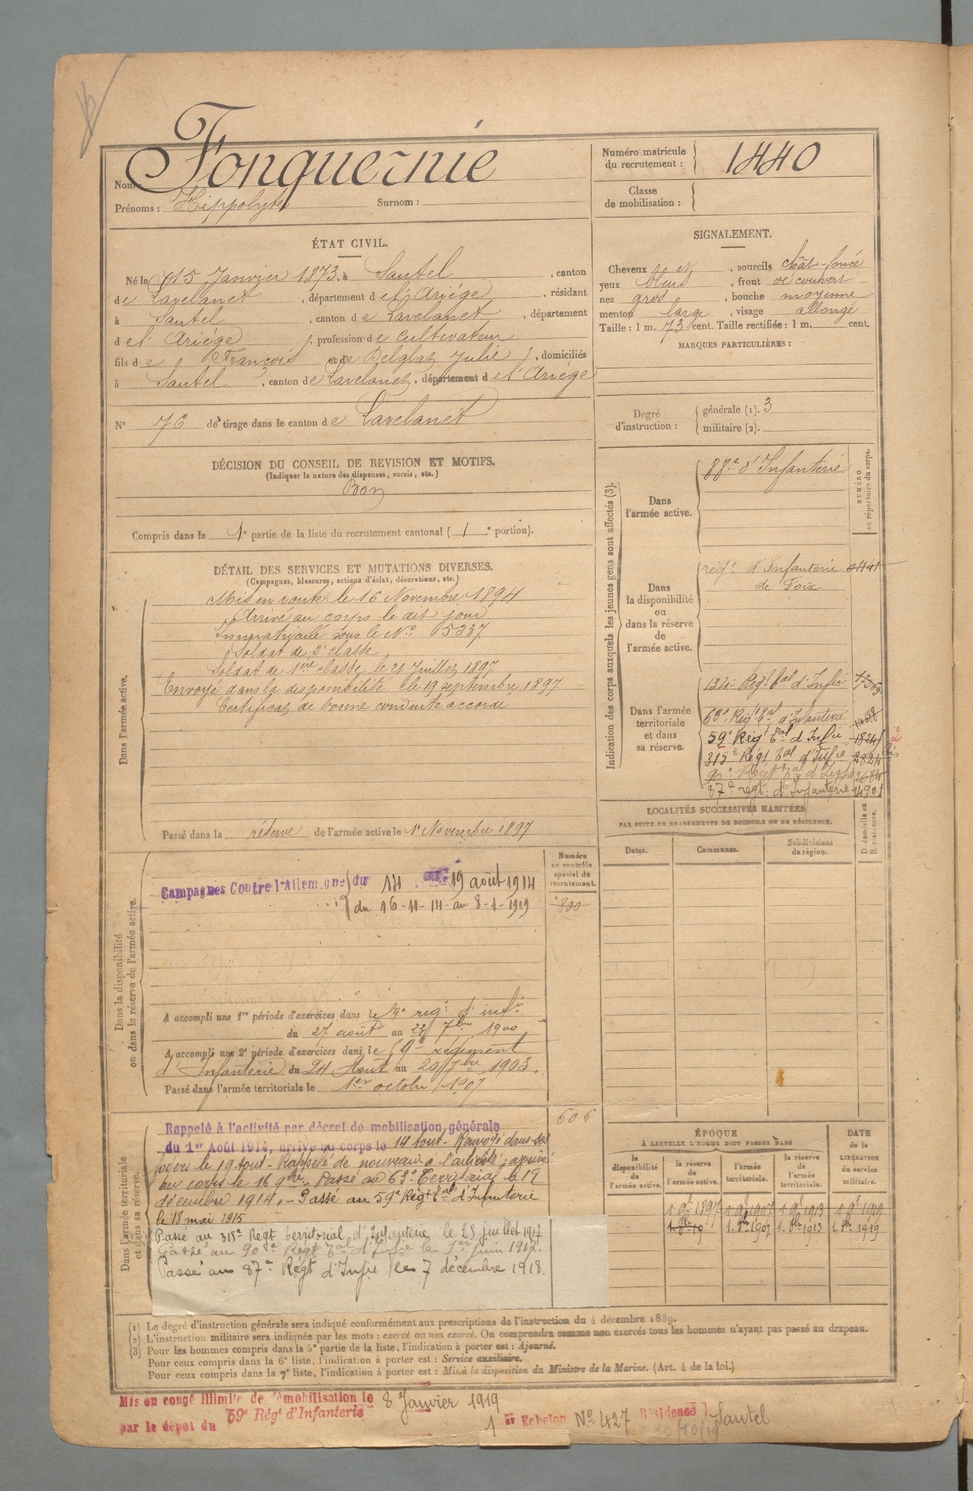 Fonquernie
Nom :
Prénoms : Hippolyte Surnom :
Numéro matricule du recrutement : 1440
Classe de mobilisation :
ÉTAT CIVIL.
Né le 15 Janvier 1873, à Sautel, canton
de Lavelanet, département de l'Ariége, résidant
à Sautel, canton de Lavelanet, département
d el' Ariége, profession de Cultivateur
fils de François et de Delglat Julie, domiciliés
à Sautel, canton de Lavelanet, département d el' Ariége
N° 76 de tirage dans le canton de Lavelanet
DÉCISION DU CONSEIL DE REVISION ET MOTIFS.
(Indiquer la nature des dispenses, sursis, etc.)
Bon
Compris dans la 1e partie de la liste du recrutement cantonal ( 1 e portion).
DÉTAIL DES SERVICES ET MUTATIONS DIVERSES.
(Campagnes, blessures, actions d'éclat, décorations, etc.)
Dans l'armée active.
Mis en route le 16 Novembre 1894
Arrivé au corps le dit jour
Immatriculé sous le N° 5337
Soldat de 2e classe
Soldat de 1ère classe le 21 Juillet 1897
Envoyé dans la disponibilité le 19 septembre 1897
Certificat de bonne conduite accordé
Passé dans la réserve de l'armée active le 1er Novembre 1897
SIGNALEMENT.
Cheveux et, sourcils chât-foncé
yeux bleus, front découvert
nez gros, bouche moyenne
menton large, visage allongé
Taille : 1 m. 73 cent. Taille rectifiée : 1 m. cent.
MARQUES PARTICULIÈRES :
Degré d'instruction : générale (1). 3
militaire (2).
Indication des corps auxquels les jeunes gens sont affectés (3).
NUMÉRO au répertoire du corps.
Dans l'armée active.
88e d'Infanterie
Dans la disponibilité ou dans la réserve de l'armée active.
régt. d'Infanterie
de Foix
Dans l'armée territoriale et dans sa réserve.
134e Régt tal d'Infie
63e Régt tal d'Infanterie
59e Régt tal d'Infie
315e Régt tal d'Infie
90e Régt tal d'Infie
87e régt. d'Infanterie
LOCALITÉS SUCCESSIVES HABITÉES
PAR SUITE DE CHANGEMENTS DE DOMICILE OU DE RÉSIDENCE.
Dates. Communes. Subdivisions de région. D domicile ou R résidence.
Dans la disponibilité ou dans la réserve de l'armée active.
Numéro au contrôle spécial du recrutement.
800
Campagnes Contre l'Allemagne du 14 au 19 août 1914
du 16-11-14 au 8-1-1919
A accompli une 1re période d'exercices dans le 59e régt d'infie
du 27 août au 23 7bre 1900
A accompli une 2e période d'exercices dans le 59e régiment
d'Infanterie du 24 Août au 20 7bre 1903.
Passé dans l'armée territoriale le 1er octobre 1907
Dans l'armée territoriale et dans sa réserve.
606
Rappelé à l'activité par décret de mobilisation générale
du 1er Août 1914, arrivé au corps le 14 Aout - Renvoyé dans ses
foyers le 19 aout - Rappelé de nouveau à l'activité, arrivé
au corps le 16 9bre. Passé au 63e Territorial le 12
décembre 1914. - Passé au 59e Régt tal d'Infanterie
le 18 mai 1915
Passé au 315e Régt territorial d'Infanterie, le 25 juillet 1917
Passé au 90e Régt tal d'Infie le 1er juin 1917.
Passé au 87e Régt d'Infie le 7 décembre 1918.
ÉPOQUE
À LAQUELLE L'HOMME DOIT PASSER DANS
DATE de la LIBÉRATION du service militaire.
la disponibilité de l'armée active. la réserve de l'armée active. l'armée territoriale. la réserve de l'armée territoriale.
1 9bre 1897 1 9bre 1907 1 9bre 1913 1 9bre 1919
1. 8bre 1907 1. 8bre 1913 1. 8bre 1919
(1) Le degré d'instruction générale sera indiqué conformément aux prescriptions de l'instruction du 4 décembre 1889.
(2) L'instruction militaire sera indiquée par les mots : exercé ou non exercé. On comprendra comme non exercés tous les hommes n'ayant pas passé au drapeau.
(3) Pour les hommes compris dans la 5e partie de la liste, l'indication à porter est : Ajourné.
Pour ceux compris dans la 6e liste, l'indication à porter est : Service auxiliaire.
Pour ceux compris dans la 7e liste, l'indication à porter est : Mis à la disposition du Ministre de la Marine. (Art. 4 de la loi.)
Mis en congé illimité de démobilisation le 8 Janvier 1919
par le dépôt du 59e Régt d'Infanterie 1er Echelon N° 427 Résidence Sautel